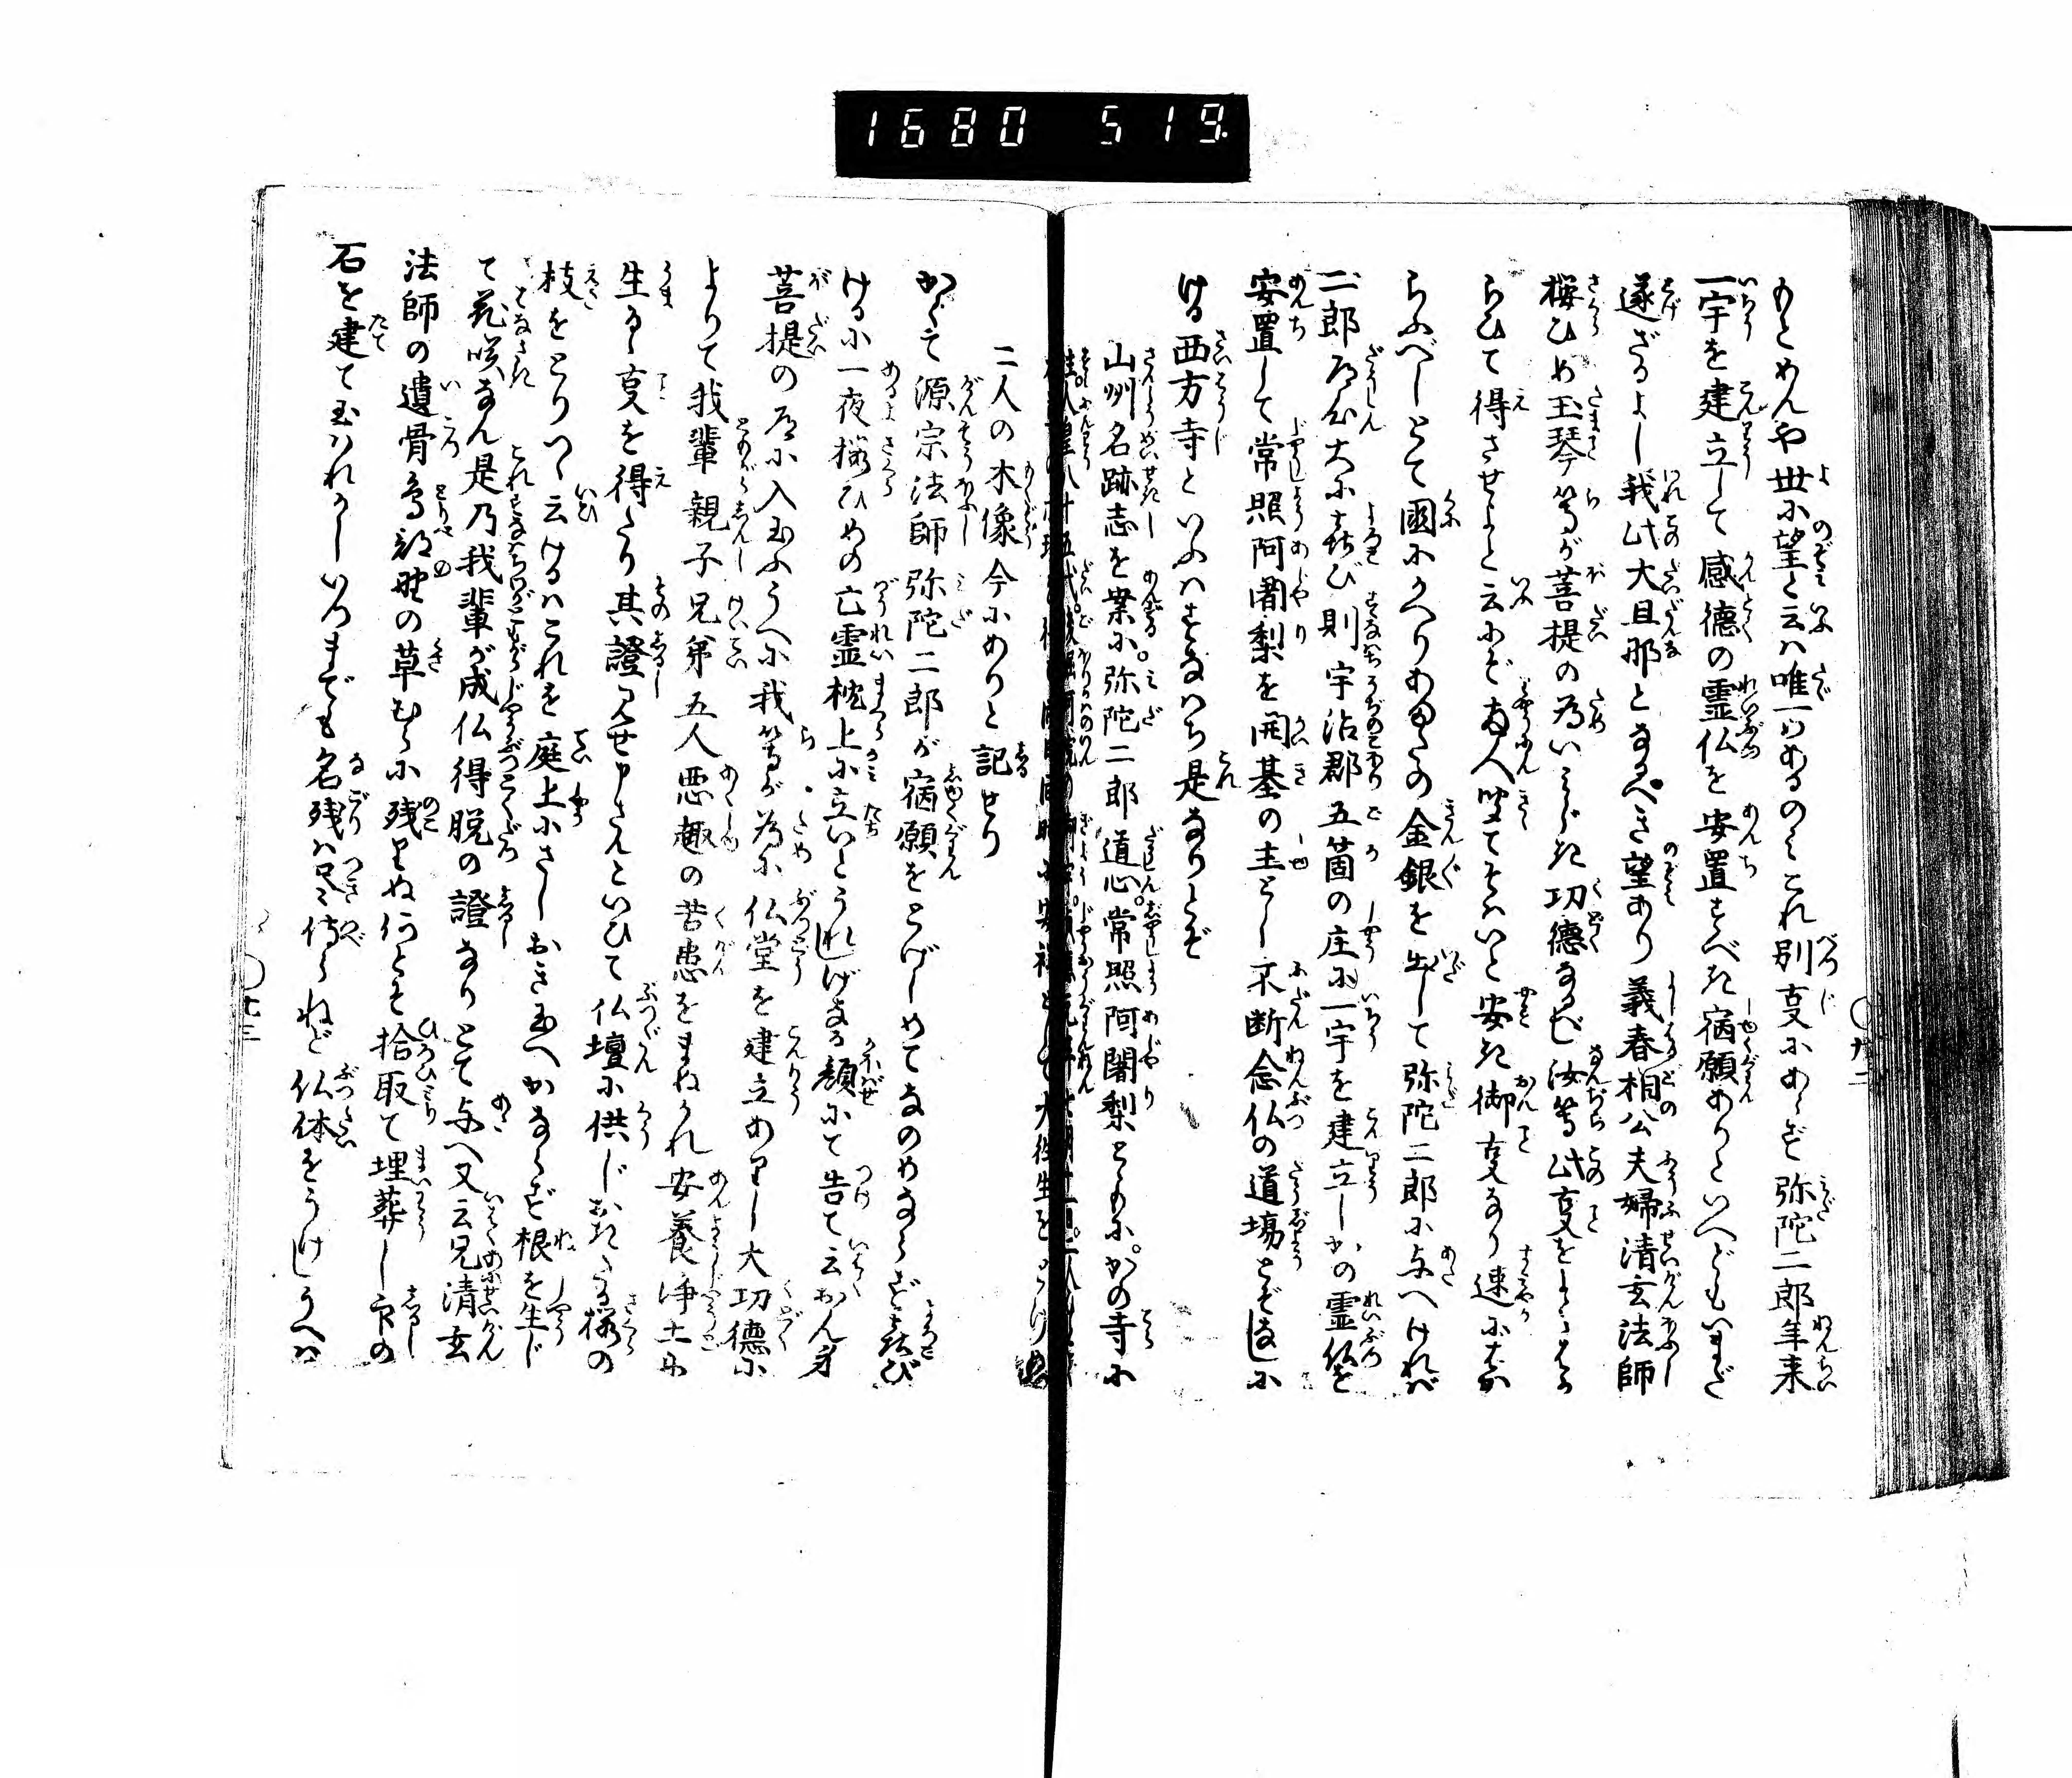 1680 519
もとめんや世に望と云は唯一つあるのみこれ別事にあらず弥陀二郎年来
一宇を建立して感徳の霊仏を安置すべき宿願ありといへどもいまだ
遂ざるよし我此大旦那となるべき望あり義春相公夫婦清玄法師
桜ひめ玉琴等が菩提の為いみじき功徳なるべし汝等此事をよくはか
らひて得させよと云にぞ両人聞てそはいと安き御事なり速にはか
らふべしとて国にかへりあまたの金銀を出して弥陀二郎に与へければ
二郎道心大に喜び則宇治郡五箇の庄に一宇を建立しかの霊仏を
安置して常照阿闍梨を開基の主とし不断念仏の道場とぞなしに
ける西方寺といふはすなはち是なりとぞ
山州名跡志を案に。弥陀二郎道心。常照阿闍梨ともに。かの寺に
二人の木像今にありと記せり
かくて源宗法師弥陀二郎が宿願をとげしめてなのめならず喜び
けるに一夜桜ひめの亡霊枕上に立いとうれしげなる顔にて告て云おん身
菩提の道に入玉ふうへに我等が為に仏堂を建立ありし大功徳に
よりて我輩親子兄弟五人悪趣の苦患をまねかれ安養浄土に
生るゝ事を得たり其證見せ申さんといひて仏壇に供じおきたる桜の
枝をとりつゝ云けるはこれを庭上にさしおき玉へかならず根を生じ
て花咲なん是乃我輩が成仏得脱の證なりとて与へ又云兄清玄
法師の遺骨鳥部野の草むらに残りぬ何とぞ拾取て埋葬し印の
石を建て玉はれかしいつまでも名残は尽侍らねど仏体をうけしうへは